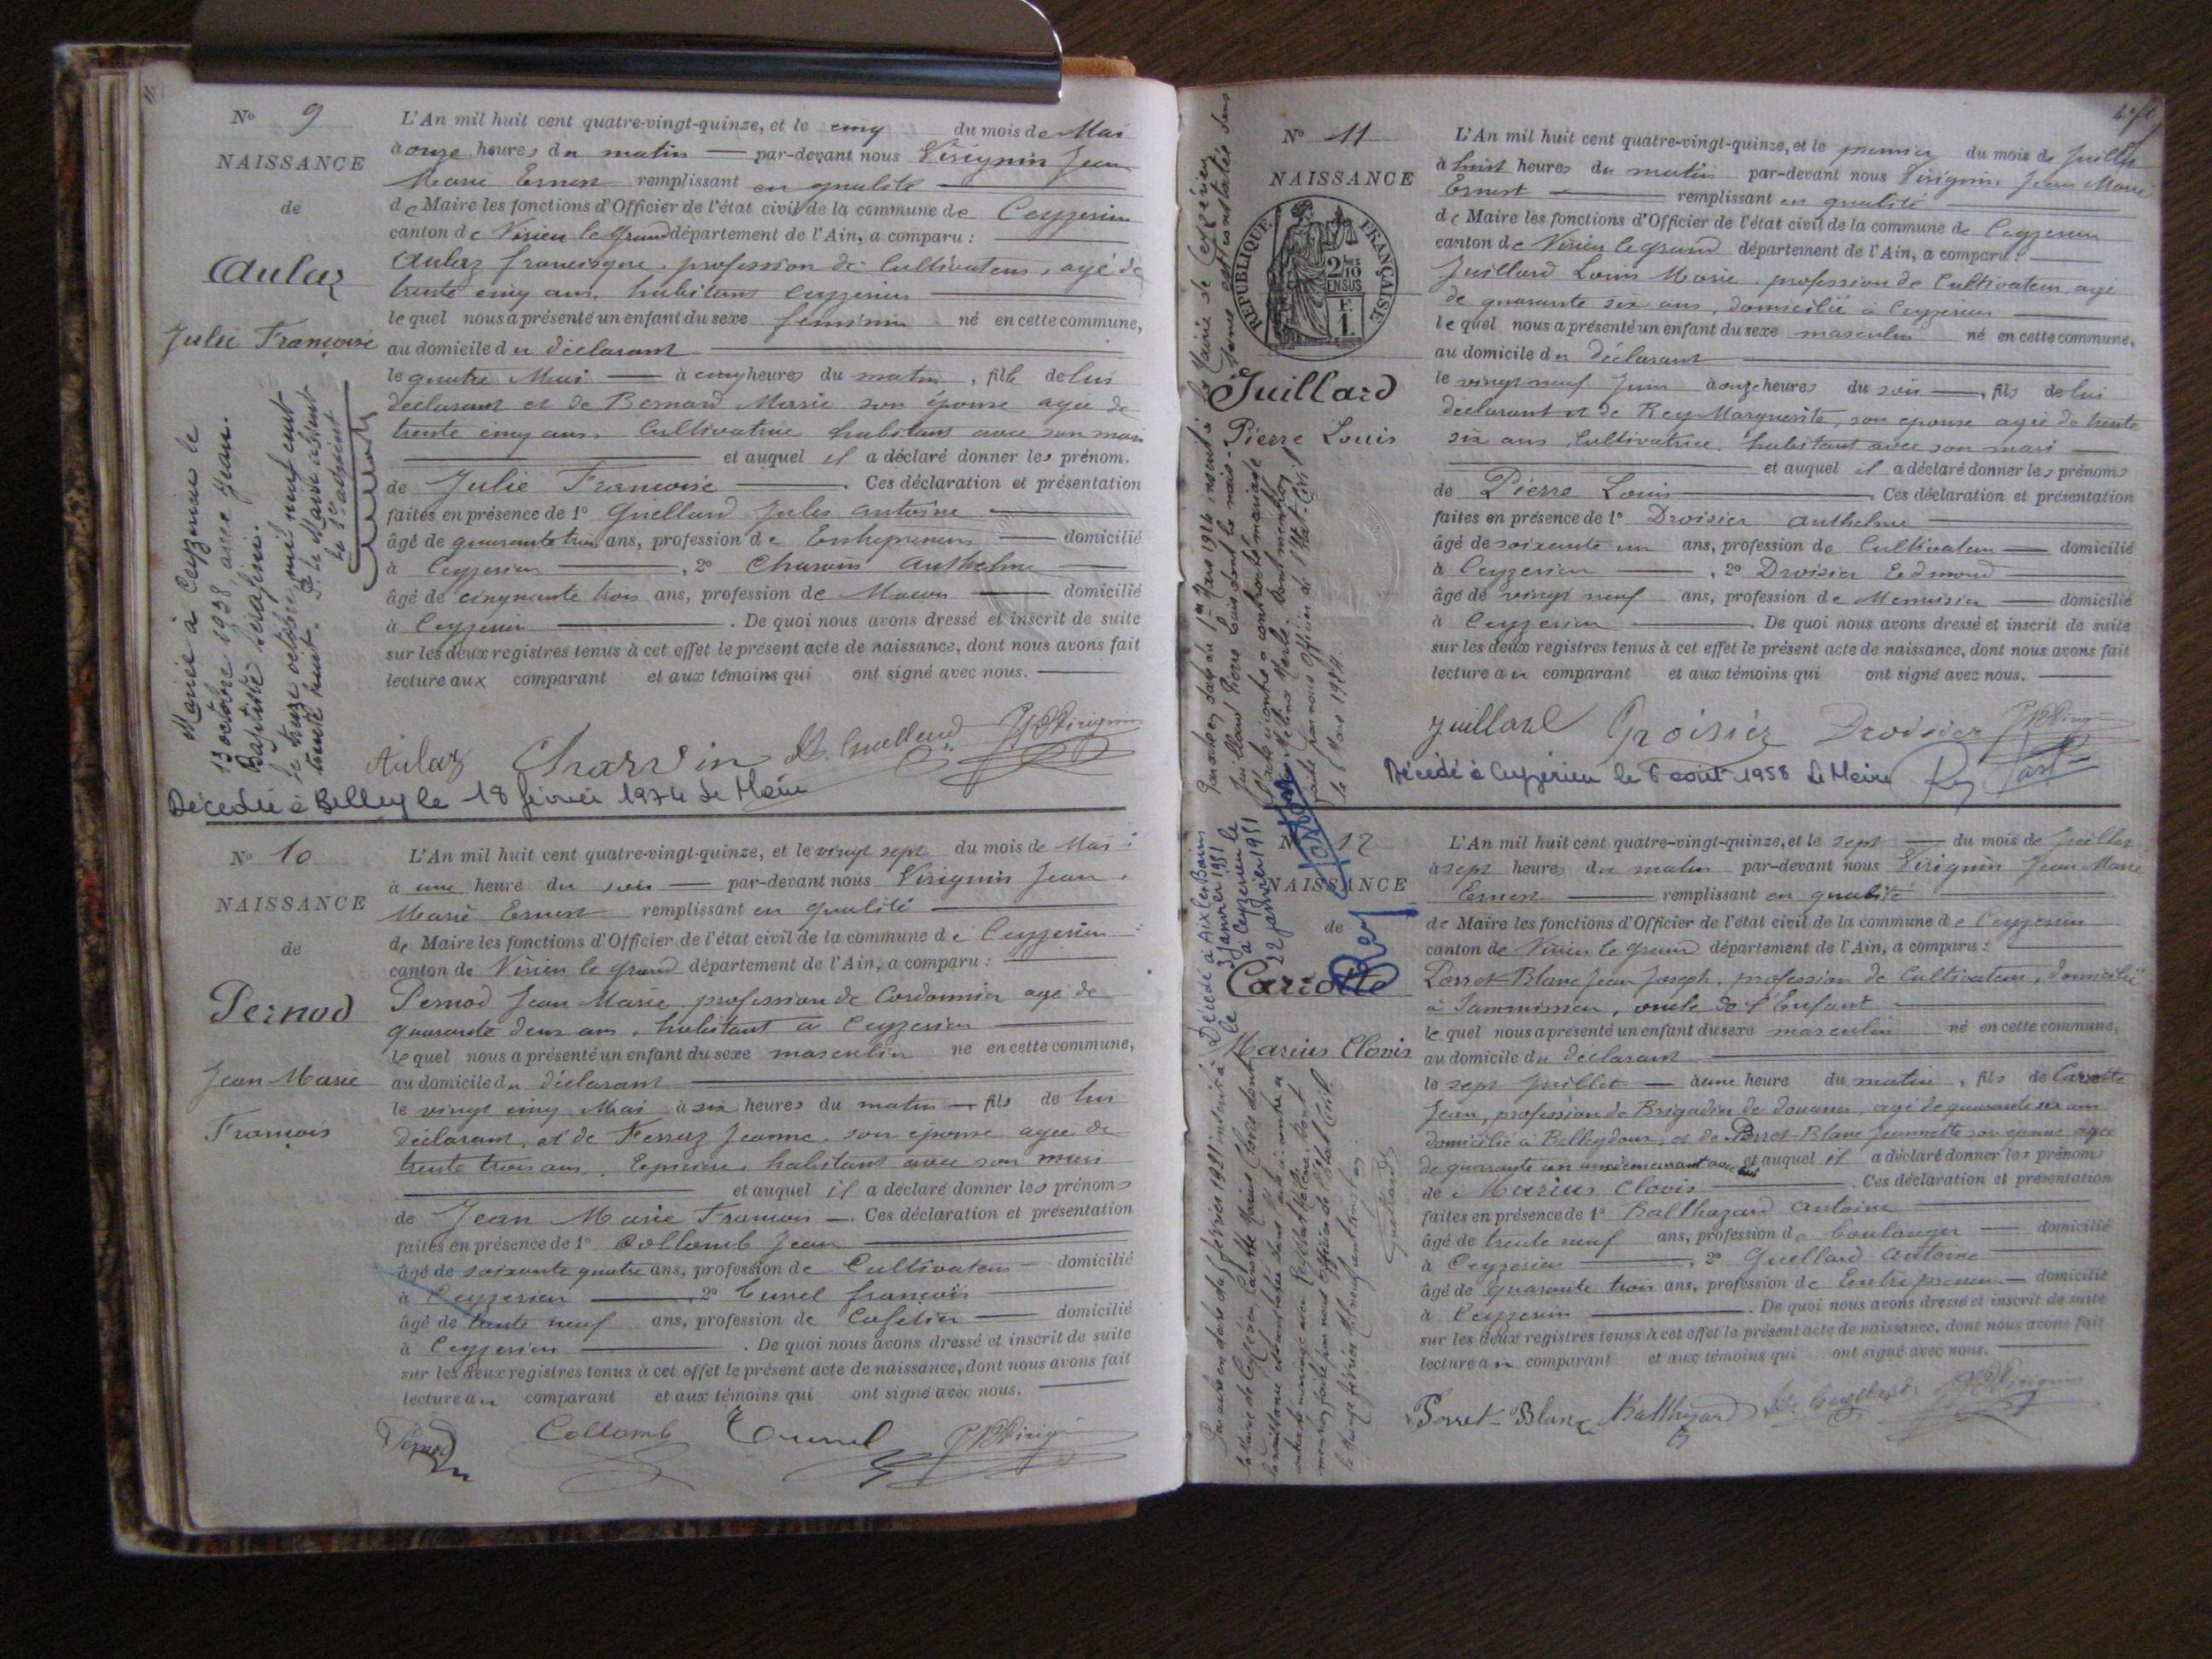 No 9
NAISSANCE
de
Aulaz
Julie Françoise
Marié à Ceyzerieu le
13 octobre 1938 avec Jean
Baptiste Seraphin.
le treize octobre mil neuf cent
trente huit. P. le Maire absent
le 1er adjoint
L'An mil huit cent quatre-vingt-quinze, et le cinq du mois de Mai
à onze heures du matin — par-devant nous Virignin Jean
Marie Ernest remplissant en qualité
de Maire les fonctions d'Officier de l'état civil de la commune de Ceyzerieu
canton de Virieu le Grand département de l'Ain, a comparu :
Aulaz francisque, profession de Cultivateur, agé de
trente cinq ans, habitant Ceyzerieu
le quel nous a présenté un enfant du sexe feminin né en cette commune,
au domicile du déclarant
le quatre Mai — à cinq heures du matin, fille de lui
déclarant et de Bernard Marie son épouse agée de
trente cinq ans, Cultivatrice habitant avec son mari
et auquel il a déclaré donner les prénom.
de Julie Francoise. Ces déclaration et présentation
faites en présence de 1° Guelland Jules Antoine
âgé de quarante trois ans, profession de Entrepreneur — domicilié
à Ceyzerieu, 2° Charvin Anthelme
âgé de cinquante trois ans, profession de Maçon domicilié
à Ceyzerieu. De quoi nous avons dressé et inscrit de suite
sur les deux registres tenus à cet effet le présent acte de naissance, dont nous avons fait
lecture aux comparant et aux témoins qui ont signé avec nous.
Aulaz Charvin Guelland Virignin
Décédée à Belley le 18 février 1974 Le Maire
No 10
NAISSANCE
de
Pernod
Jean Marie
François
L'An mil huit cent quatre-vingt-quinze, et le vingt sept du mois de Mai
à une heure du soir — par-devant nous Virignin Jean
Marie Ernest remplissant en qualité
de Maire les fonctions d'Officier de l'état civil de la commune de Ceyzerieu
canton de Virieu le Grand département de l'Ain, a comparu :
Pernod Jean Marie profession de Cordonnier agé de
quarante deux ans, habitant à Ceyzerieu
le quel nous a présenté un enfant du sexe masculin né en cette commune,
au domicile du déclarant
le vingt cinq Mai à six heures du matin — fils de lui
déclarant, et de Ferraz Jeanne, son épouse agée de
trente trois ans, habitant avec son mari
et auquel il a déclaré donner les prénoms
de Jean Marie Francois —. Ces déclaration et présentation
faites en présence de 1° Collomb Jean
âgé de soixante quatre ans, profession de Cultivateur — domicilié
à Ceyzerieu, 2° Tournel françois
âgé de trente neuf ans, profession de Cafetier — domicilié
à Ceyzerieu. De quoi nous avons dressé et inscrit de suite
sur les deux registres tenus à cet effet le présent acte de naissance, dont nous avons fait
lecture au comparant et aux témoins qui ont signé avec nous.
Pernod Collomb Virignin
No 11
NAISSANCE
RÉPUBLIQUE FRANÇAISE
2/10
EN SUS
F.
1.
Juillard
Pierre Louis
L'An mil huit cent quatre-vingt-quinze, et le premier du mois de Juillet
à huit heures du matin par-devant nous Virignin Jean Marie
Ernest — remplissant en qualité
de Maire les fonctions d'Officier de l'état civil de la commune de Ceyzerieu
canton de Virieu le grand département de l'Ain, a comparu :
Juillard Louis Marie, profession de Cultivateur, agé
de quarante six ans, domicilié à Ceyzerieu
le quel nous a présenté un enfant du sexe masculin né en cette commune,
au domicile du déclarant
le vingt neuf Juin à onze heures du soir —, fils de lui
déclarant et de Rey Marguerite, son épouse agée de trente
six ans, Cultivatrice, habitant avec son mari
et auquel il a déclaré donner les prénoms
de Pierre Louis. Ces déclaration et présentation
faites en présence de 1° Droisier Anthelme
âgé de soixante un ans, profession de Cultivateur — domicilié
à Ceyzerieu, 2° Droisier Edmond
âgé de vingt neuf ans, profession de Menuisier — domicilié
à Ceyzerieu. De quoi nous avons dressé et inscrit de suite
sur les deux registres tenus à cet effet le présent acte de naissance, dont nous avons fait
lecture au comparant et aux témoins qui ont signé avec nous.
Juillard Droisier Droisier
Décédé à Ceyzerieu le 6 août 1958 Le Maire
No 12
NAISSANCE
de
Carrotte
Marius Clovis
Décédé à Aix les Bains
le 3 janvier 1951
à Ceyzerieu le
22 janvier 1951
L'An mil huit cent quatre-vingt-quinze, et le sept — du mois de Juillet
à sept heures du matin par-devant nous Virignin Jean Marie
Ernest — remplissant en qualité
de Maire les fonctions d'Officier de l'état civil de la commune de Ceyzerieu
canton de Virieu le grand département de l'Ain, a comparu :
Perret-Blanc Jean Joseph, profession de Cultivateur, domicilié
à, oncle de l'Enfant
le quel nous a présenté un enfant du sexe masculin né en cette commune,
au domicile du déclarant
le sept Juillet — à une heure du matin, fils de Carrotte
Jean, profession de Brigadier de douanes, agé de quarante six ans
domicilié à Belleydoux, et de Perret-Blanc Jeannette son épouse agée
de quarante un ans demeurant avec lui et auquel il a déclaré donner les prénoms
de Marius Clovis. Ces déclaration et présentation
faites en présence de 1° Balthazard Antoine
âgé de trente neuf ans, profession de boulanger — domicilié
à Ceyzerieu, 2° Guelland Antoine
âgé de quarante trois ans, profession de Entrepreneur — domicilié
à Ceyzerieu. De quoi nous avons dressé et inscrit de suite
sur les deux registres tenus à cet effet le présent acte de naissance, dont nous avons fait
lecture au comparant et aux témoins qui ont signé avec nous.
Perret-Blanc Balthazard Guelland Virignin